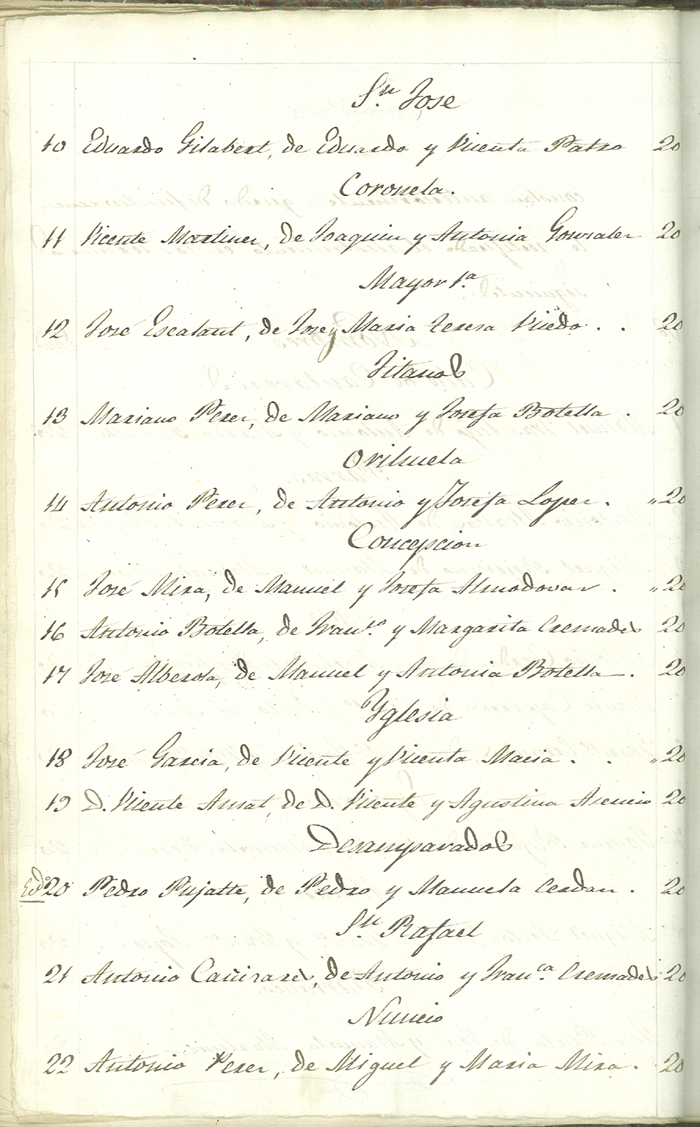 Sn. José
10 Eduardo Gilabert, de Eduardo y Vicenta Pastro 20
Coronela.
11 Vicente Martinez, de Joaquin y Antonia Gonzalez 20
Mayor 1a
12 José Escalant, de José y Maria Teresa Pliedo . . 20
Jitanos
13 Mariano Perez, de Mariano y Josefa Botella . 20
Orihuela
14 Antonio Perez, de Antonio y Josefa Lopez . "20
Concepcion
15 José Mira, de Manuel y Josefa Almodovar . "20
16 Antonio Botella, de Franco. y Margarita Cremades 20
17 José Alberola, de Manuel y Antonia Botella . 20
Yglesia
18 José Garcia, de Vicente y Vicenta Macia . . "20
19 D. Vicente Amat, de D. Vicente y Agustina Asencio 20
Desamparados
20 Pedro Pujalte, de Pedro y Manuela Cerdan . 20
Sn. Rafael
21 Antonio Cañizares, de Antonio y Franca. Cremades 20
Nuncio
22 Antonio Perez, de Miguel y Maria Mira . 20